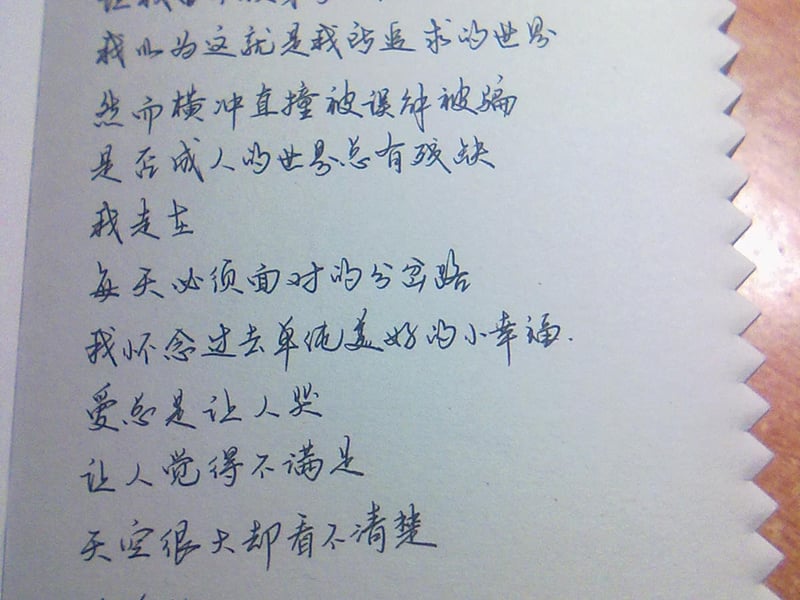 我以为这就是我所追求的世界
然而横冲直撞被误解被骗
是否成人的世界总有残缺
我走在
每天必须面对的分岔路
我怀念过去单纯美好的小幸福.
爱总是让人哭
让人觉得不满足
天空很大却看不清楚